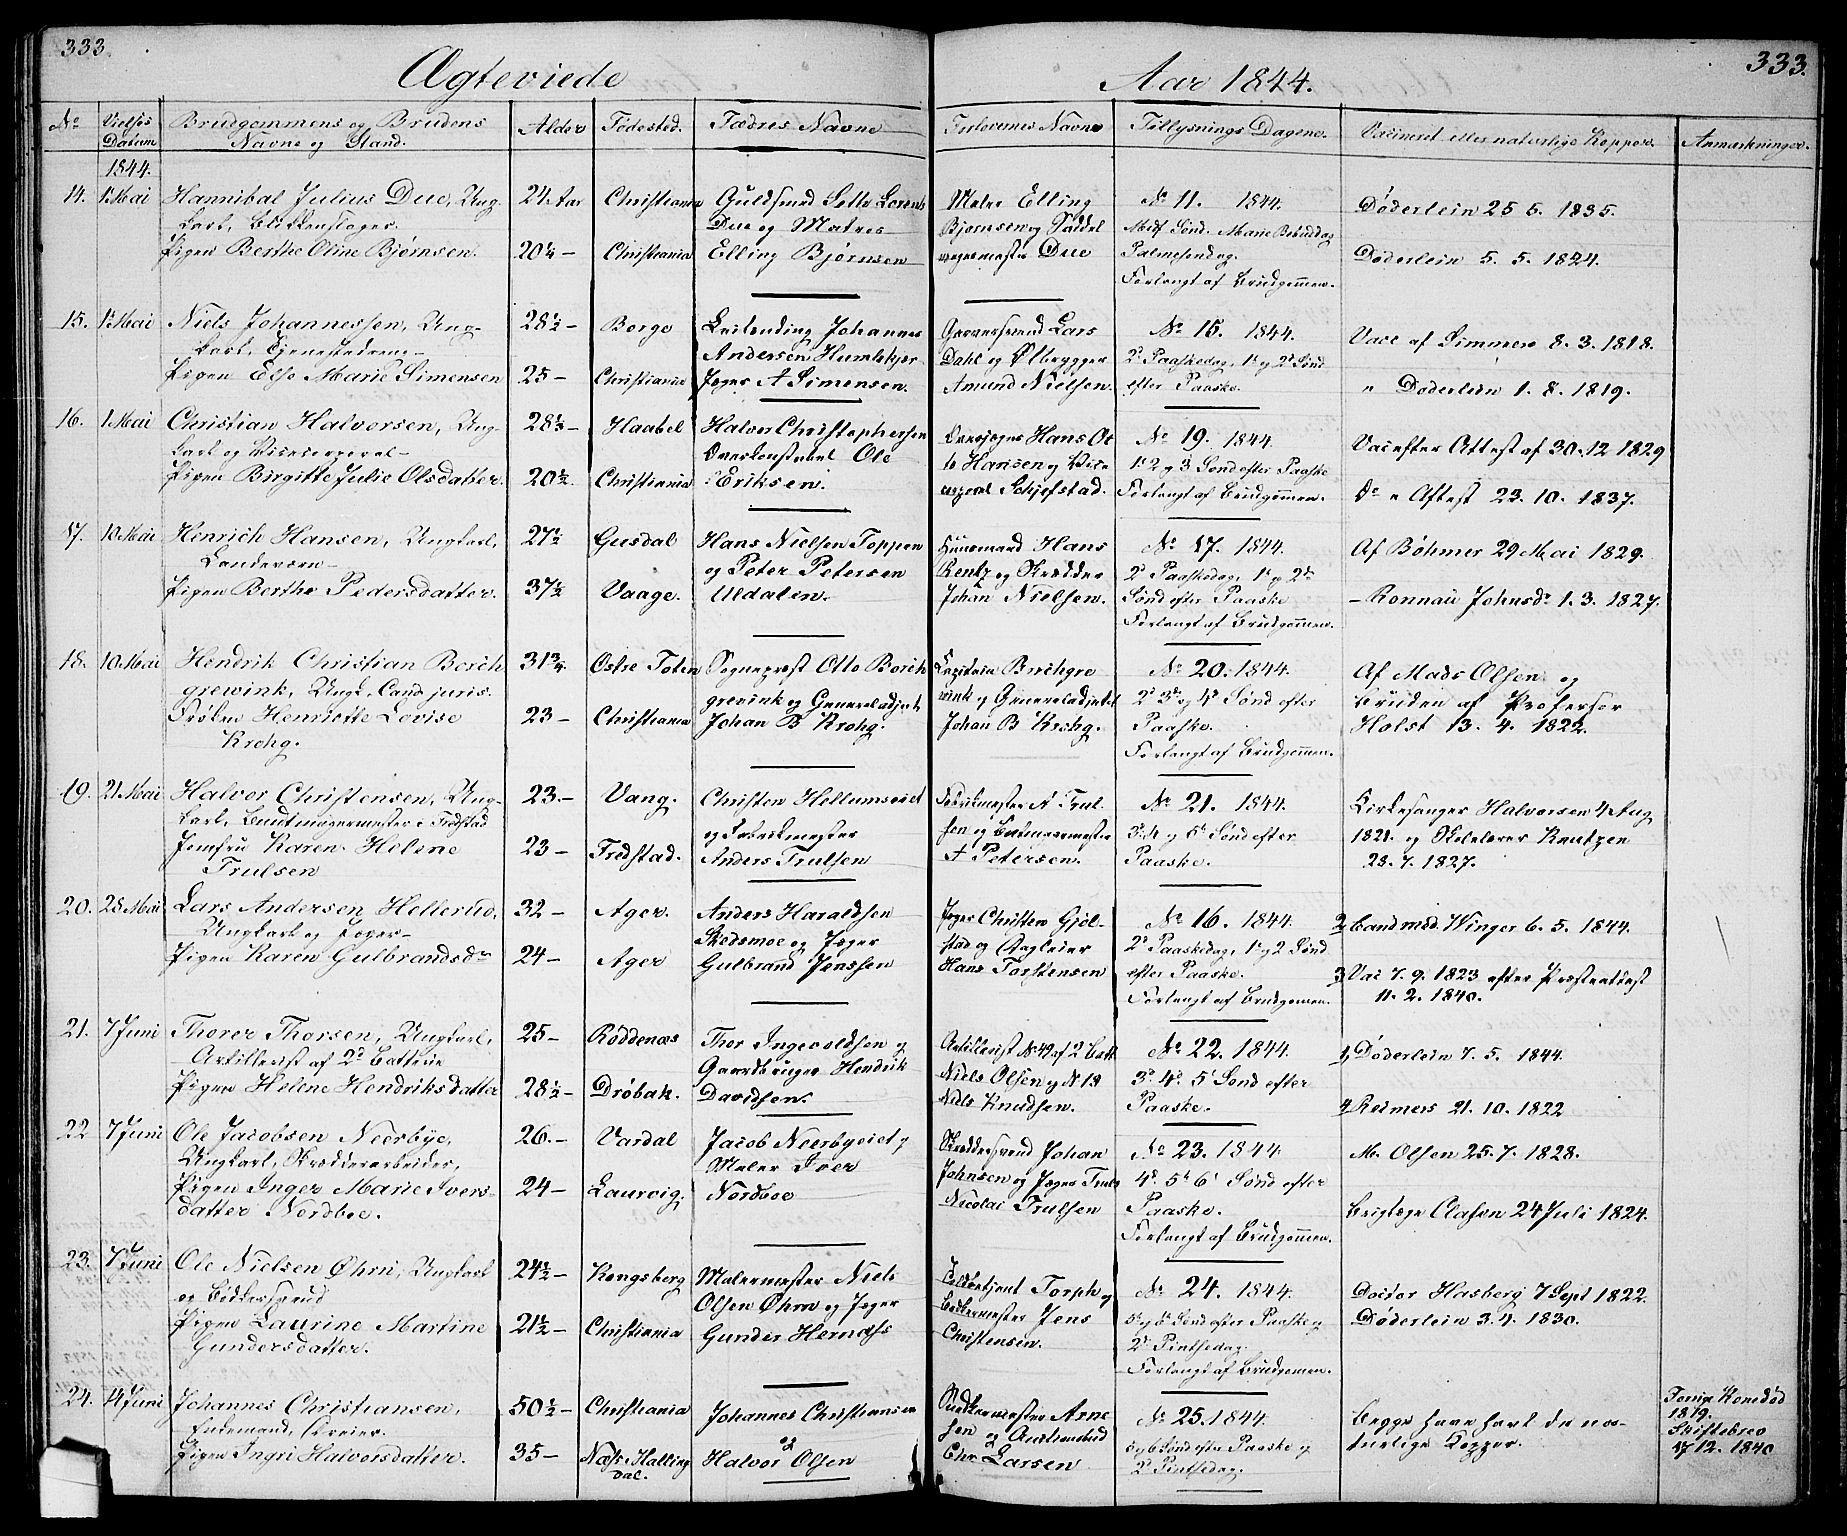 333.
Ægteviede
Aar 1844.
333.
No Vielses Datum Brudgommens og Brudens Navne og Stand. Alder Fødested. Fædres Navne Forlovernes Navne Tillysnings Dagene. Vaccineret eller naturlige Kopper. Anmærkninger.
1844.
14. 1 Mai Hannibal Julius Due, Ung-
karl, Blikkenslager.
24 Aar Christiania
Pigen Berthe Oline Bjørnsen.
20¼ — Christiania
Guldsmed Sotto Lorents
Due og Matros
Elling Bjørnsen
Matr Elling
Bjørnsen og Saddel
magermester Due
No 11. 1844.
Midf Sønd. Marie Bebuddag
Palmesøndag.
Forlangt af Brudgommen.
Døderlein 25. 5. 1835.
Døderlein 5. 5. 1824.
15. 1 Mai Niels Johannessen, Ung-
karl, Tjenestedreng—
28½ — Borge
Pigen Else Marie Simensen
25 — Christiania
Leilending Johannes
Andersen Humlekjær
Jæger A Simensen.
Garversvend Lars
Dahl og Ølbrygger
Amund Nielsen.
No 15. 1844.
2d Paaskedag, 1s og 2d Sønd
efter Paaske.
Vacc af Simmers 8. 3. 1818.
" Døderlein 1. 8. 1819.
16. 1 Mai Christian Halvorsen, Ung-
karl og Vicecorporal—
28⅓ — Haabel
Pigen Birgitte Julie Olsdatter.
20½ Christiania
Halvor Christophersen
Overkonstabel Ole
Eriksen.
Hans Ol
Hansen og Vice
corporal Schjefstad.
No 19. 1844.
1s 2 og 3 Sønd efter Paaske
Forlangt af Brudgommen.
Vac efter Attest af 30. 12 1829
Do " Attest 23. 10. 1837.
17. 10 Mai Henrich Hansen, Ungkarl,
Landeværn—
27½ Gusdal
Pigen Berthe Pedersdatter.
37½ Vaage.
Hans Nielsen Toppen
og Peter Petersen
Uldalen.
Huusmand Hans
Rentz og Skrædder
Johan Nielsen.
No 17. 1844.
2d Paaskedag, 1s og 2den
Sønd efter Paaske
Forlangt af Brudgommen.
Af Bøhmer 29 Mai 1829.
— Ronnau Johnsdr 1. 3. 1827.
18. 10 Mai Hendrik Christian Borch
grewink, Ungk, Cand juris.
31¾ Østre Toten
Frøken Henriette Lovise
Krohg.
23 — Christiania
Sognepræst Otto Borch
grevink og Generaladjut
Johan B Krohg.
Capitain Brchgre
vink og Generaladjut
Johan B Krohg.
No 20. 1844.
2d 3d og 4d Sønd efter
Paaske.
Forlangt af Brudgommen.
Af Mads Olsen og
Bruden af Professor
Holst 13. 4. 1822.
19. 21 Mai Halvor Christensen, Ung-
karl, Buntmagermester i Fredstad
23. — Vang.
Jomfru Karen Helene
Trulsen
23 — Fredstad.
Christen Hellumseiet
og Fabrikmester
Anders Trulsen
Fabrikmester A Trul
sen og Buntmagermester
A Petersen.
No 21. 1844.
3d 4 og 5d Sønd efter
Paaske.
Kirkesanger Halvorsen 4 Aug
1821. og Skolelærer Knutzen
23. 7. 1827.
20. 28 Mai Lars Andersen Hellerud,
Ungkarl og Jæger—
32 — Ager.
Pigen Karen Gulbrandsdr
24 — Ager
Anders Haraldsen
Skedsmoe og Jæger
Gulbrand Jenssen
Jæger Christen Gjøl-
stad og Dagleier
Hans Torstensen
No 16. 1844.
2d Paaskedag, 1s og 2 Sønd
efter Paaske.
Forlangt af Brudgommen.
2, Cand med. Winger 6. 5. 1844.
3, Vac 7. 9. 1823 efter Præsteattest
11. 2. 1840.
21. 7 Juni Thorer Thorsen, Ungkarl,
Artillerist af 2d Batterie
25 — Røddenæs
Pigen Helene Hendriksdatter
28½ — Drøbak.
Thor Ingevoldsen og
Gaardbruger Hendrik
Davidsen.
Artillerist No 49 af 2 Batt
Niels Olsen og N 19
Niels Knudsen.
No 22. 1844.
3d 4d 5d Sønd efter
Paaske.
1, Døderlein 7. 5. 1844.
4, Reimers 21. 10. 1822
22 7 Juni Ole Jacobsen Neerbye,
Ungkarl, Skrædderarbeider,
26. — Vardal
Pigen Inger Marie Ivers-
datter Nordboe.
24 — Laurvig.
Jacob Neerbyeiet og
Maler Iver
Nordboe
Skræddersvend Johan
Johnsen og Jæger Truls
Nicolai Trulsen
No 23. 1844.
4d 5d 6d Sønd efter
Paaske.
Forlangt af Brudgommen.
M. Olsen 25. 7. 1828.
Brigtage Olafsn 24 Juli 1824.
23. 7 Juni Ole Nielsen Øhrn, Ungkarl
og Bødkersvend
24½ — Kongsberg
Pigen Laurine Martine
Gundersdatter.
21½ — Christiania
Malermester Niels
Olsen Øhrn og Jæger
Gunder Hernæss
Toldbetjent Torph og
Bødkermester Jens
Christensen.
No 24. 1844.
5d og 6d Sønd efter Paaske og
2d Pintsedag.
Forlangt af Brudgommen.
Doctor Hasberg 7 Sept 1822.
Døderlein 3. 4. 1830.
24. 14 Juni Johannes Christiansen,
Enkemand, Dreier.
50½ — Christiania
Pigen Ingri Halvorsdatter.
35 — Næs i Halling
dal.
Johannes Christiansen
og
Halvor Olsen
Arne
sen og
Chr Larsen
No 25. 1844.
5 og 6 Sønd efter Paaske og
2d Pintsedag.
Begge have havt de na-
turlige Kopper.
Forrige Kone død
1819.
Skiftebrev
17. 12. 1840